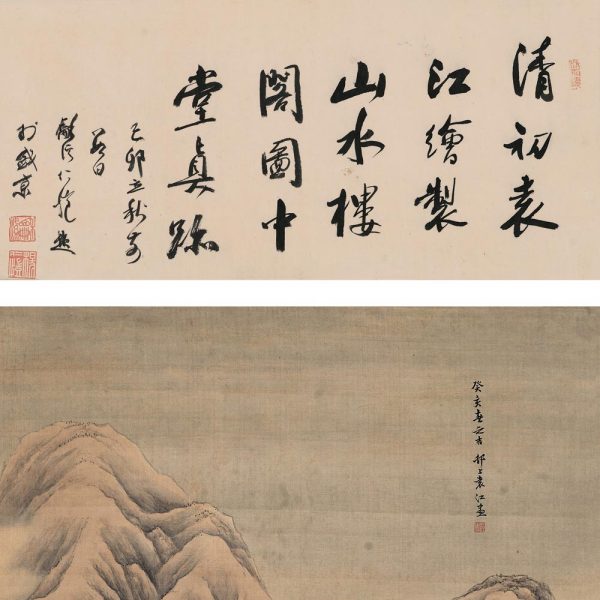 清初袁
江繪製
山水樓
閣圖中
堂真跡
己卯立秋前
日
龢溪仁愷題
於盛京
癸亥春之吉 邗上袁江畫